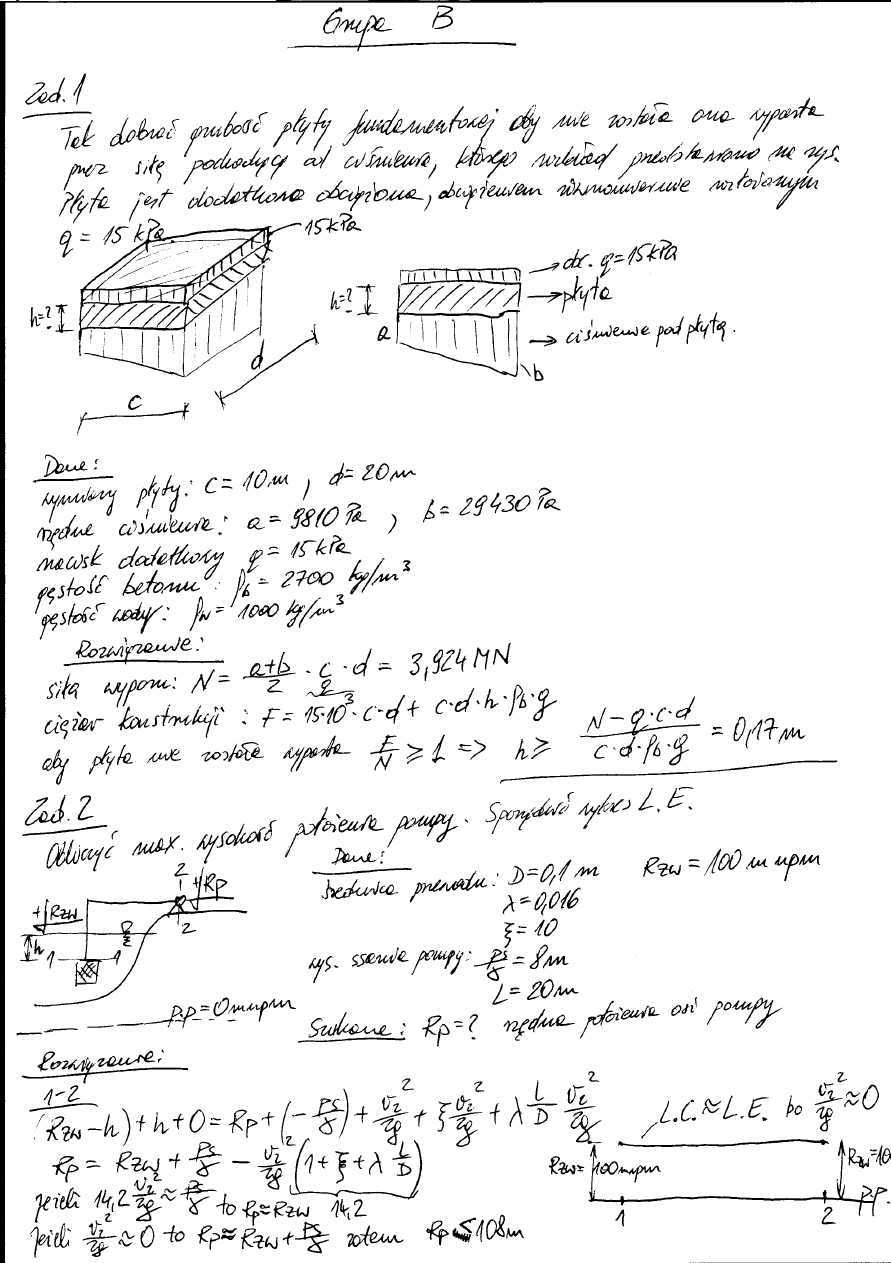 Grupa B
Zad. 1
Tak dobrać grubość płyty fundamentowej aby nie została ona wyparta
przez siłę pochodzącą od ciśnienia, którego rozkład przedstawiono na rys.
Płyta jest dodatkowo obciążona, obciążeniem równomiernie rozłożonym
q = 15 kPa.
15 kPa
h=?
c
d
→ obc. q = 15 kPa
h=?
→ płyta
a
→ ciśnienie pod płytą.
b
Dane:
wymiary płyty: c = 10 m, d = 20 m
rzędne ciśnienia: a = 9810 Pa, b = 29430 Pa
nacisk dodatkowy q = 15 kPa
gęstość betonu: ρb = 2700 kg/m³
gęstość wody: ρw = 1000 kg/m³
Rozwiązanie:
siła wyporu: N = (a+b)/2 · c · d = 3,924 MN
ciężar konstrukcji: F = 15·10³ · c·d + c·d·h·ρb·g
aby płyta nie została wyparta F/N ≥ 1 => h ≥ (N - q·c·d)/(c·d·ρb·g) = 0,17 m
Zad. 2
Obliczyć max. wysokość położenia pompy. Sporządzić wykres L.E.
Dane:
średnica przewodu: D = 0,1 m Rzw = 100 m npm
λ = 0,016
ξ = 10
wys. ssania pompy: ps/γ = 8 m
L = 20 m
2
Rp
Rzw
h
1 1
2
p.p = 0 m npm
Szukane: Rp = ? rzędna położenia osi pompy
Rozwiązanie:
1-2
(Rzw - h) + h + 0 = Rp + (- ps/γ) + v₂²/2g + ξ v₂²/2g + λ L/D v₂²/2g
L.C. ≈ L.E. bo v₂²/2g ≈ 0
Rp = Rzw + ps/γ - v₂²/2g (1 + ξ + λ L/D)
14,2
Rzw = 100 m npm
Rzw = 10
jeżeli 14,2 v₂²/2g ≈ ps/γ to Rp ≈ Rzw
1 2 p.p.
jeżeli v₂²/2g ≈ 0 to Rp ≈ Rzw + ps/γ zatem Rp ≤ 108 m